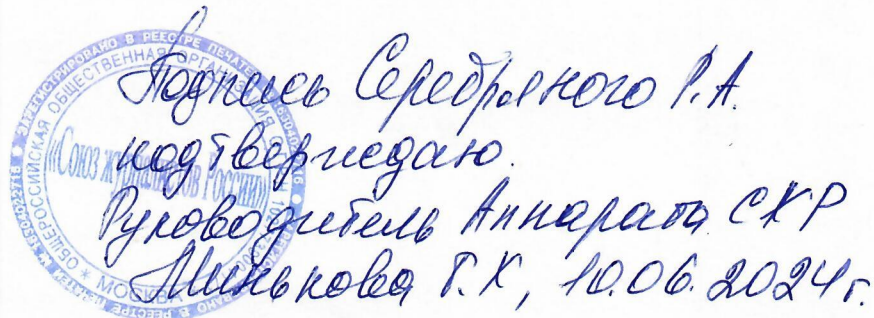 Подпись Серебряного Р.А.
подтверждаю.
Руководитель Аппарата СЖР
Минькова Т.К, 10.06.2024г.
ОБЩЕРОССИЙСКАЯ ОБЩЕСТВЕННАЯ ОРГАНИЗАЦИЯ
«Союз журналистов России»
* МОСКВА